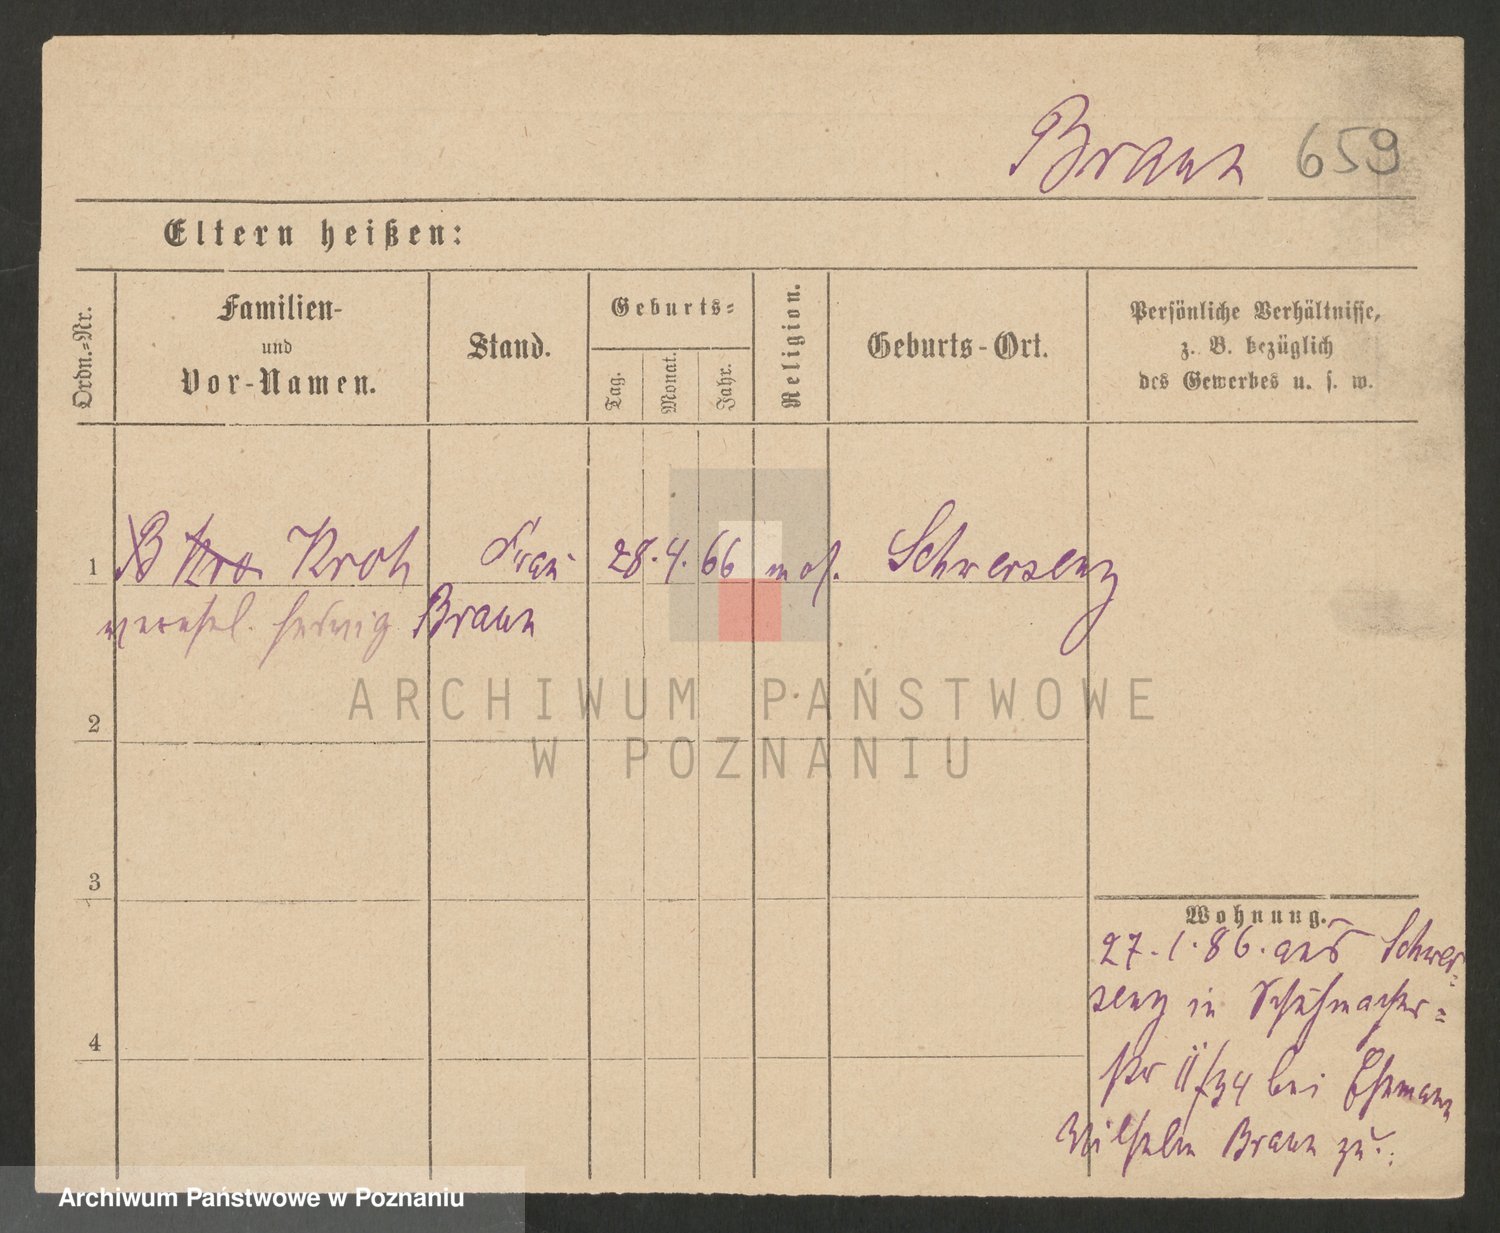 Braun 659
Eltern heißen:
Ordn.-Nr.
Familien-
und
Vor-Namen.
Stand.
Geburts-
Tag.
Monat.
Jahr.
Religion.
Geburts-Ort.
Persönliche Verhältnisse,
z. B. bezüglich
des Gewerbes u. s. w.
1 B Kro Kroh Frau 28. 4. 66 mos. Schwersenz
verehel. Hedwig Braun
2
3
4
ARCHIWUM PAŃSTWOWE
W POZNANIU
Wohnung.
27. 1. 86. aus Schwer-
senz in Schuhmacher-
str 11/ bei Ehemann
Wilhelm Braun zu.
Archiwum Państwowe w Poznaniu